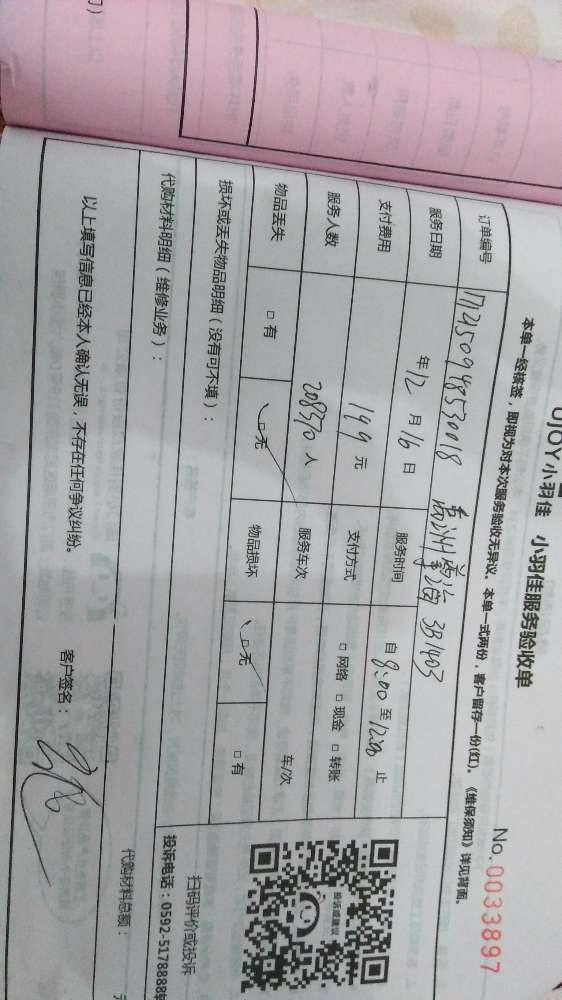 UJOY小羽佳 小羽佳服务验收单
No.0033897
本单一经接签，即视为对本次服务验收无异议、本单一式两份，客户留存一份(红)。《维保须知》详见背面。
订单编号 1712150948530018 3B1403
服务日期 年12月16日 服务时间 自8:00至12:00止
支付费用 199元 支付方式 □网络 □现金 □转账
服务人数 208370人 服务车次 车/次
物品丢失 □有 □无 物品损坏 □无 □有
损坏或丢失物品明细（没有可不填）：
代购材料明细（维修业务）：
代购材料总额：
以上填写信息已经本人确认无误，不存在任何争议纠纷。
客户签名：
扫码评价或投诉
投诉电话：0592-5178888转